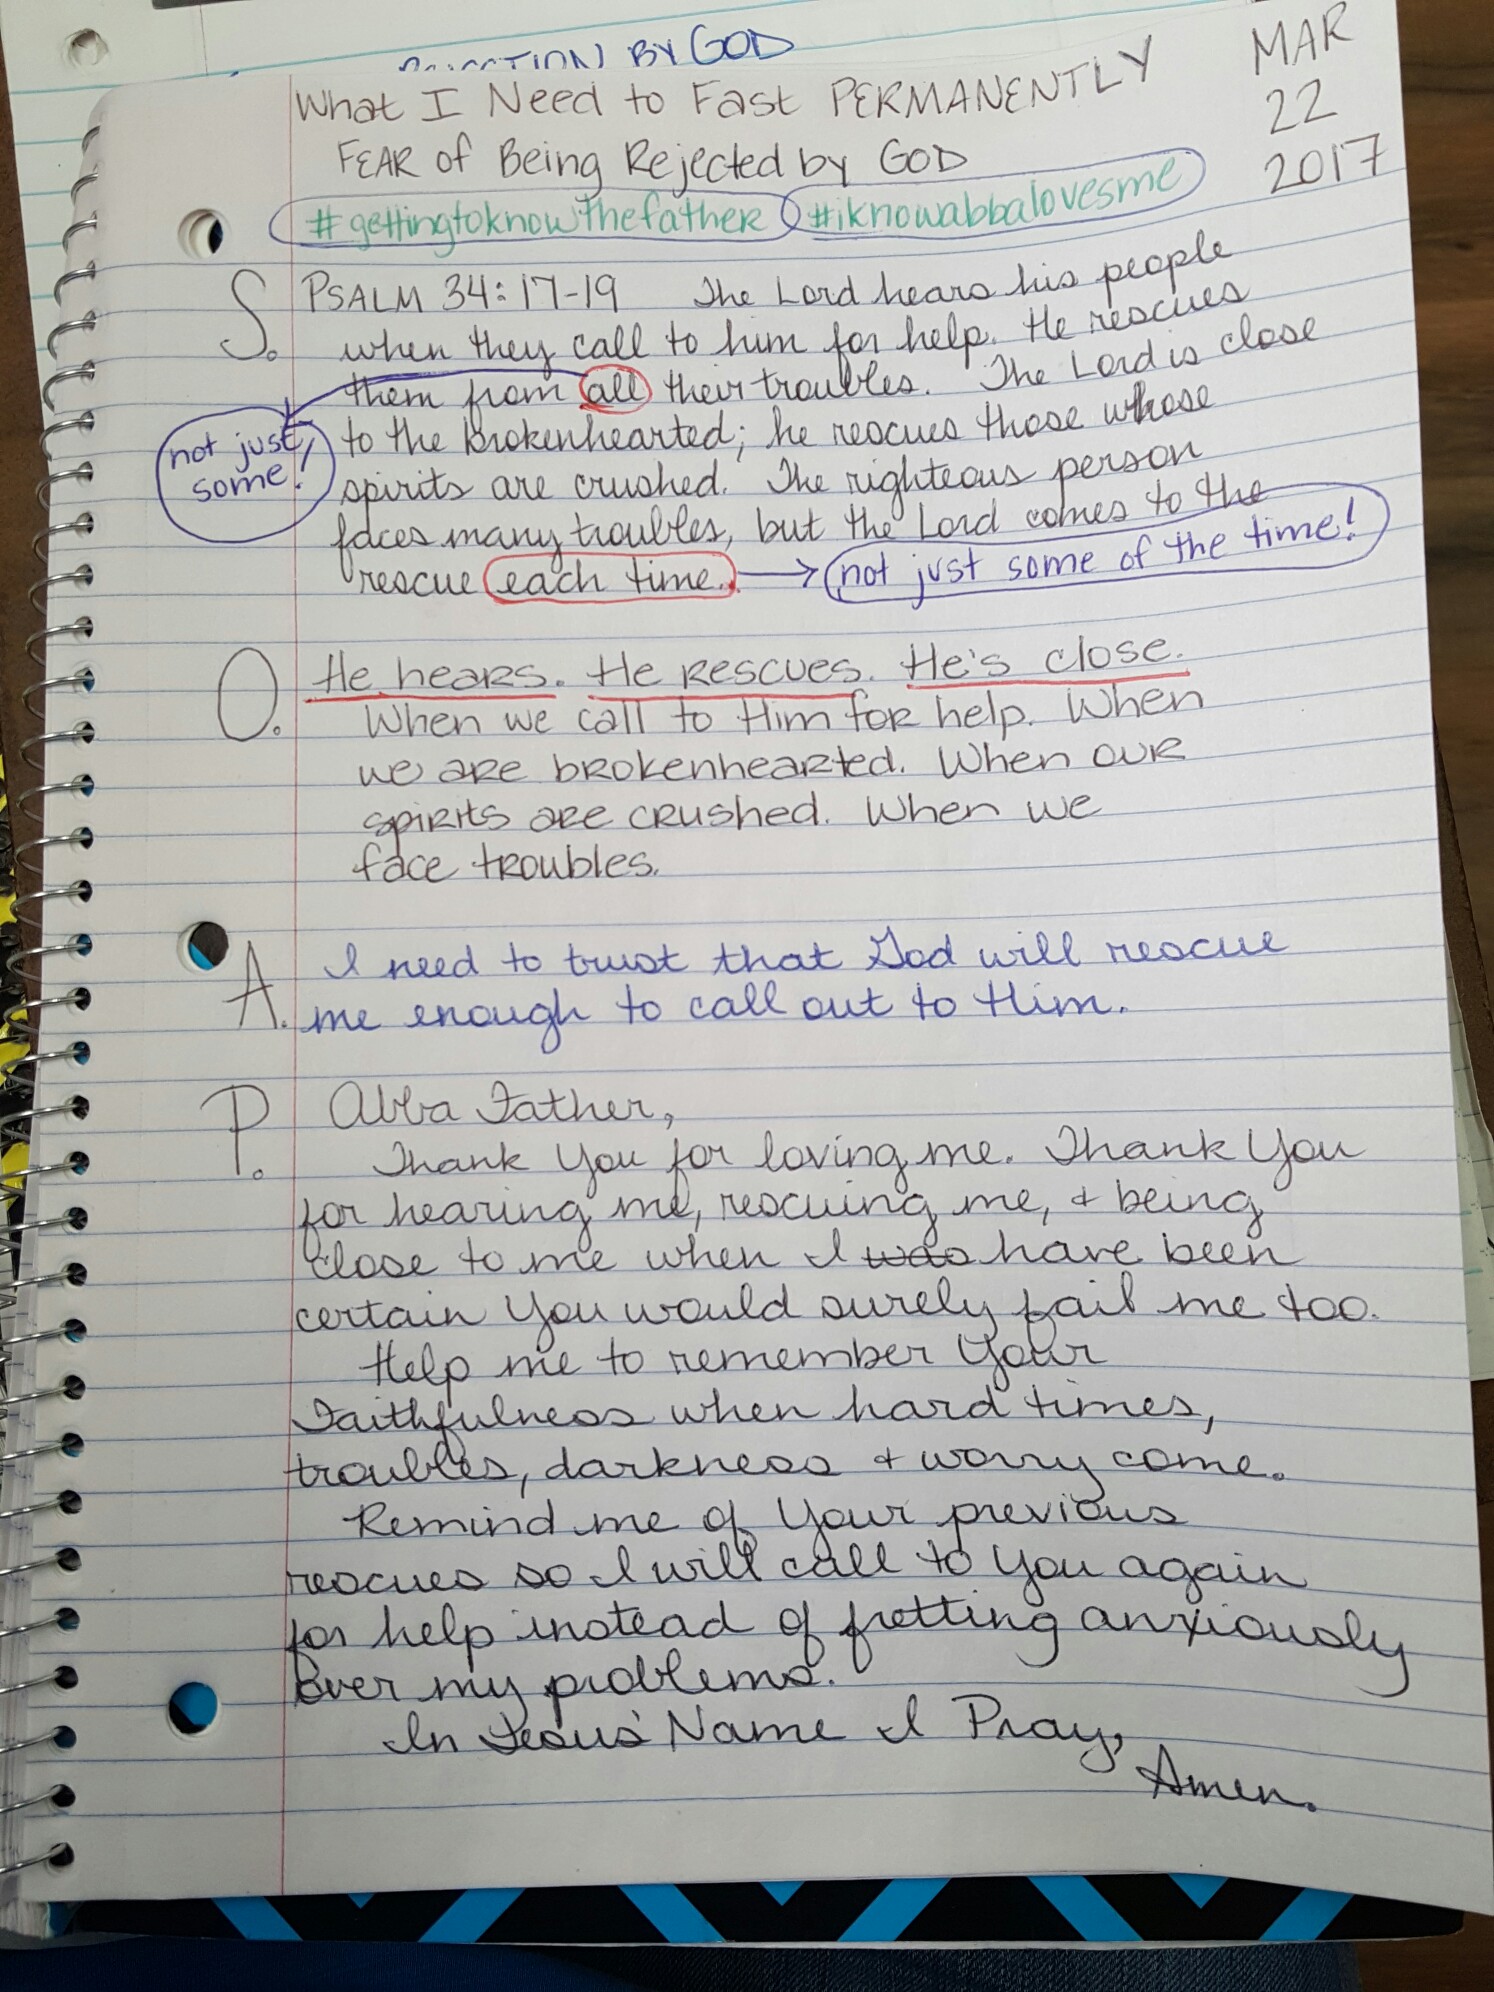 BY GOD
What I Need to Fast PERMANENTLY
FEAR of Being Rejected by GOD
MAR
22
2017
#gettingtoknowthefather #iknowabbalovesme
S. PSALM 34:17-19 The Lord hears his people
when they call to him for help. He rescues
them from all their troubles. The Lord is close
not just some!
to the brokenhearted; he rescues those whose
spirits are crushed. The righteous person
faces many troubles, but the Lord comes to the
rescue each time. → not just some of the time!
O. He hears. He rescues. He's close.
When we call to Him for help. When
we are brokenhearted. When our
spirits are crushed. When we
face troubles.
A. I need to trust that God will rescue
me enough to call out to Him.
P. Abba Father,
Thank You for loving me. Thank You
for hearing me, rescuing me, + being
close to me when I was have been
certain You would surely fail me too.
Help me to remember Your
Faithfulness when hard times,
troubles, darkness + worry come.
Remind me of Your previous
rescues so I will call to You again
for help instead of fretting anxiously
over my problems.
In Jesus' Name I Pray,
Amen.